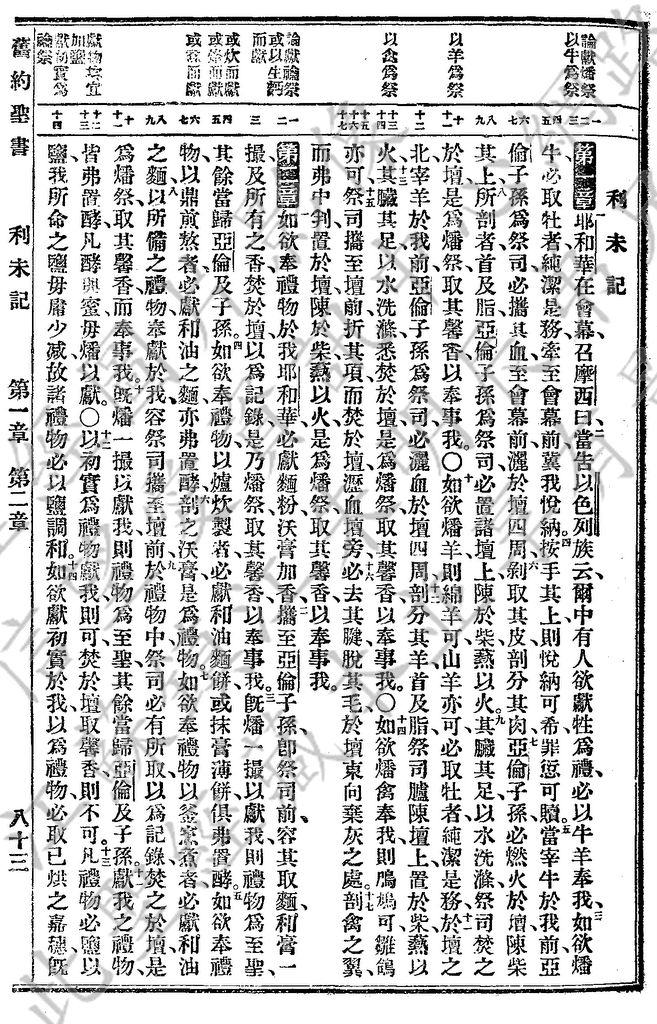 利未記
第一章 耶和華在會幕召摩西曰當告以色列族云爾中有人欲獻牲爲禮必以牛羊奉我如欲燔
牛必取牡者純潔是務牽至會幕前冀我悅納按手其上則悅納可希罪愆可贖當宰牛於我前亞
倫子孫爲祭司必攜其血至會幕前灑於壇四周剝取其皮剖分其肉亞倫子孫必燃火於壇陳柴
其上所剖者首及脂亞倫子孫爲祭司必置諸壇上陳於柴爇以火其臟其足以水洗滌祭司焚之
於壇是爲燔祭取其馨香以奉事我〇如欲燔羊則綿羊可山羊亦可必取牡者純潔是務於壇之
北宰羊於我前亞倫子孫爲祭司必灑血於壇四周剖分其羊首及脂祭司臚陳壇上置於柴爇以
火其臟其足以水洗滌悉焚於壇是爲燔祭取其馨香以奉事我〇如欲燔禽奉我則鳲鳩可雛鴿
亦可祭司攜至壇前折其項而焚於壇瀝血壇旁必去其膆脫其毛於壇東向棄灰之處剖禽之翼
而弗中判置於壇陳於柴爇以火是爲燔祭取其馨香以奉事我
第二章 如欲奉禮物於我耶和華必獻麵粉沃膏加香攜至亞倫子孫卽祭司前容其取麵和膏一
撮及所有之香焚於壇以爲記錄是乃燔祭取其馨香以奉事我旣燔一撮以獻我則禮物爲至聖
其餘當歸亞倫及子孫如欲奉禮物以爐炊製者必獻和油麵餅或抹膏薄餅俱弗置酵如欲奉禮
物以鼎煎熬者必獻和油之麵亦弗置酵剖之沃膏是爲禮物如欲奉禮物以釜烹者必獻和油
之麵以所備之禮物奉獻於我容祭司攜至壇前於禮物中祭司必有所取以爲記錄焚之於壇是
爲燔祭取其馨香而奉事我旣燔一撮以獻我則禮物爲至聖其餘當歸亞倫及子孫獻我之禮物
皆弗置酵凡酵與蜜毋燔以獻〇以初實爲禮物獻我則可焚於壇取馨香則不可凡禮物必鹽以
鹽我所命之鹽毋庸少減故諸禮物必以鹽調和如欲獻初實於我以爲禮物必取已烘之嘉穗旣
論獻燔祭
以牛爲祭
以羊爲祭
以禽爲祭
論獻禮祭
或以生麵
而獻
或炊而獻
或煎而獻
或烹而獻
獻物皆宜
加鹽
獻初實爲
禮祭
舊約聖書 利未記 第一章 第二章 八十三